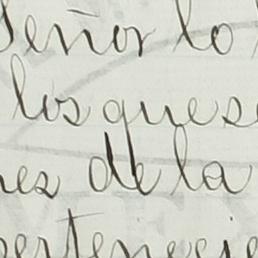 señor lo
los ques
nes de la
pertenecie